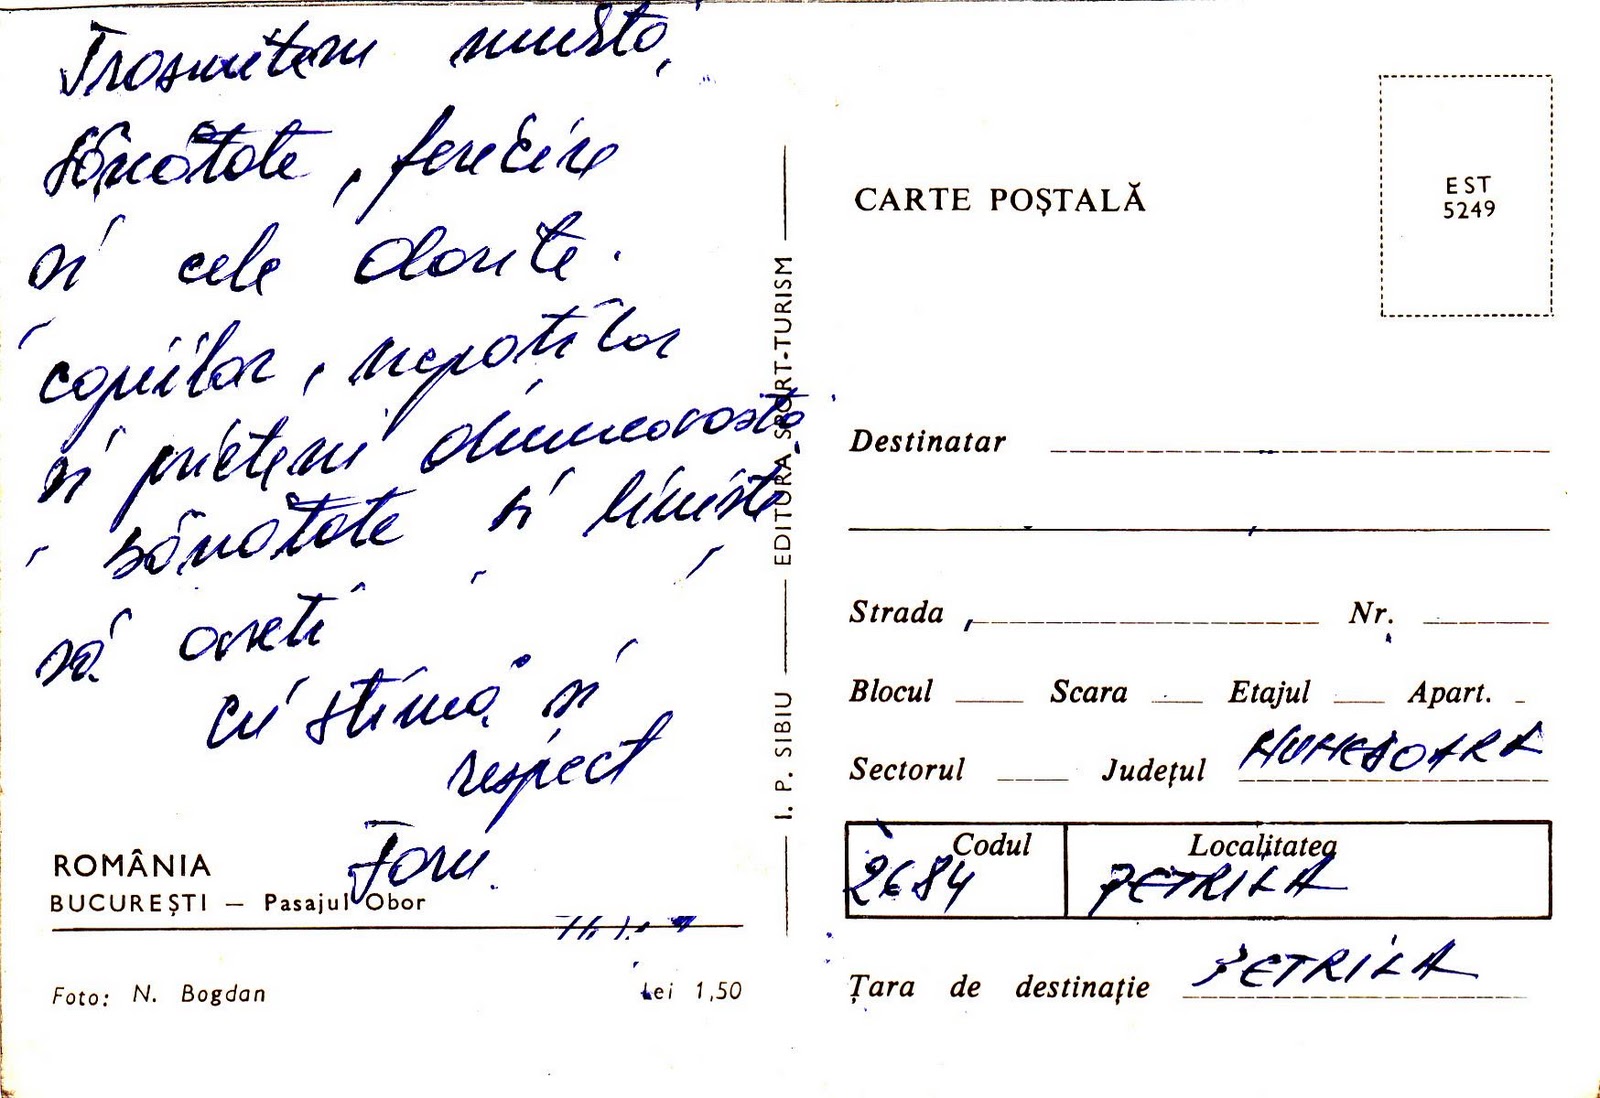 Trasmitem multă
sănătate, fericire
și cele dorite.
copiilor, nepoților
și prieteni dumneavoastă
sănătate și liniște
să aveți
cu stimă și
respect
ROMÂNIA
BUCUREȘTI — Pasajul Obor
Foto: N. Bogdan
Lei 1,50
I. P. SIBIU — EDITURA SPORT-TURISM
CARTE POȘTALĂ
EST
5249
Destinatar
Strada Nr.
Blocul Scara Etajul Apart.
Sectorul Județul HUNEDOARA
Codul Localitatea
2684 PETRILA
Țara de destinație PETRILA